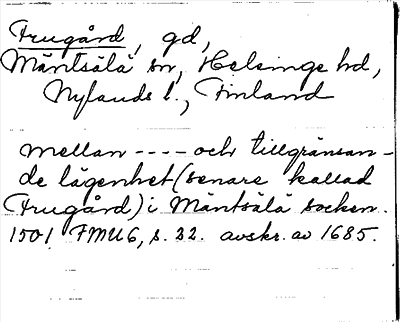 Frugård, gd,
Mäntsälä sn, Helsinge hd,
Nylands l., Finland
mellan ---- och tillgränsan-
de lägenhet (senare kallad
Frugård) i Mäntsälä socken.
1501 FMU 6, s. 32. avskr. av 1685.